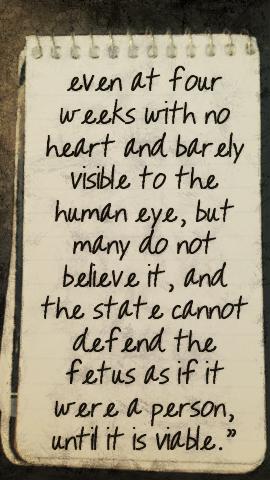 even at four
weeks with no
heart and barely
visible to the
human eye, but
many do not
believe it, and
the state cannot
defend the
fetus as if it
were a person,
until it is viable."